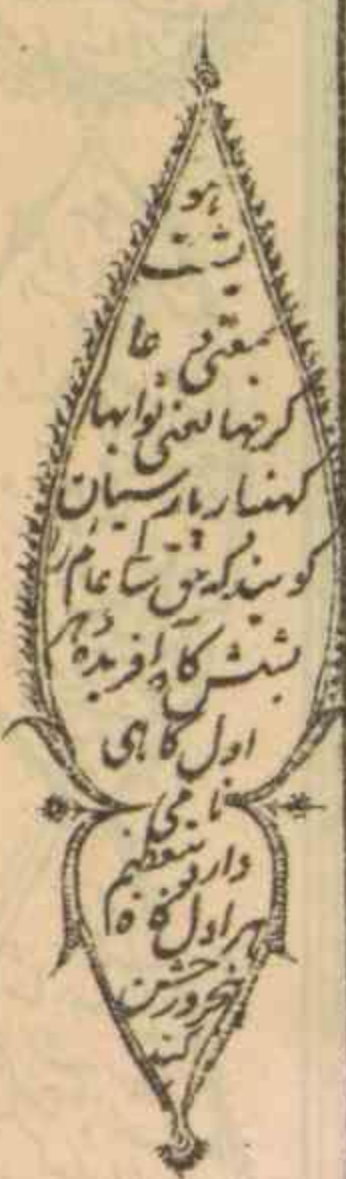 هو
یشت
بمعنی دعا
کرفهها یعنی ثوابها
کهنبار پارسیان
کویند که حق تعا عالم را
بشش کاه افریده و هر
اول کاهی
نامی
دارد بتعظیم
هر اول کاه
پنجروز جشن
کنند